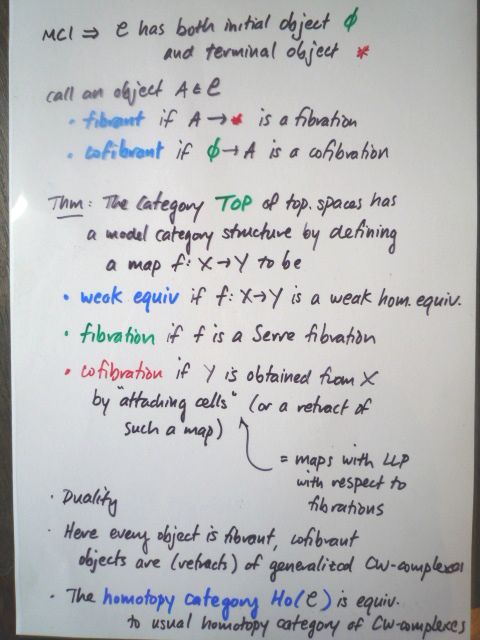 MC1 ⇒ C has both initial object ϕ
and terminal object *
call an object A ∈ C
• fibrant if A → * is a fibration
• cofibrant if ϕ → A is a cofibration
Thm: The category TOP of top. spaces has
a model category structure by defining
a map f: X → Y to be
• weak equiv if f: X → Y is a weak hom. equiv.
• fibration if f is a Serre fibration
• cofibration if Y is obtained from X
by "attaching cells" (or a retract of
such a map)
= maps with LLP
with respect to
fibrations
• Duality
• Here every object is fibrant, cofibrant
objects are (retracts) of generalized CW-complexes
• The homotopy category Ho(C) is equiv.
to usual homotopy category of CW-complexes